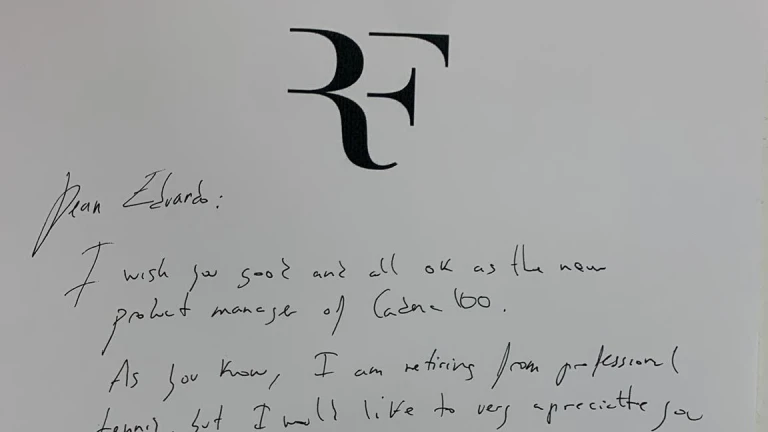 RF
Dear Eduardo:
I wish you good and all ok as the new
product manager of Cadena 100.
As you know, I am retiring from professional
tennis, but I would like to very apreciatte you